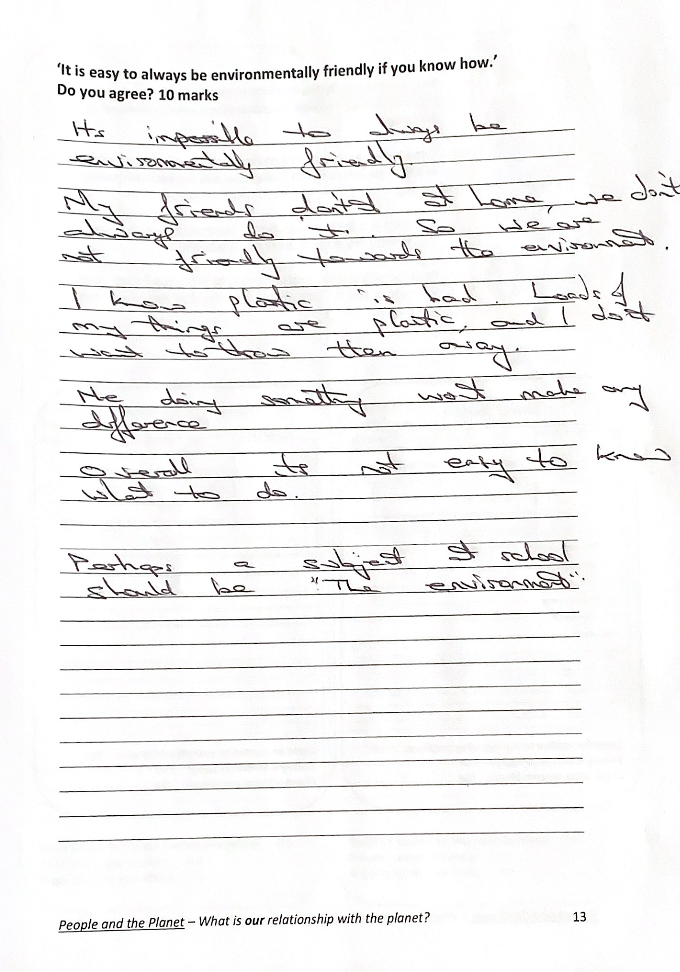 'It is easy to always be environmentally friendly if you know how.'
Do you agree? 10 marks
Its impossible to always be
environmentally friendly.
My friends don't at home, we don't
always do it. So we are
not friendly towards the environment.
I know plastic is bad. Loads of
my things are plastic, and I don't
want to throw them away.
Me doing something wont make any
difference
Overall its not easy to know
what to do.
Perhaps a subject at school
should be "The environment".
People and the Planet – What is our relationship with the planet?
13